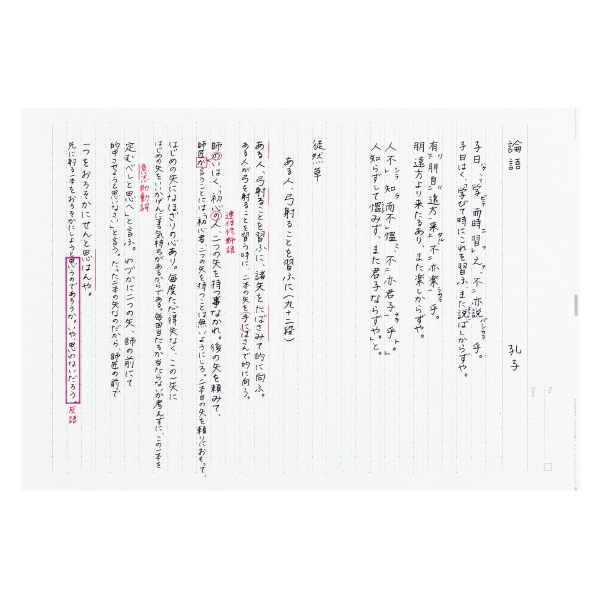 論語　孔子
子曰、「学而時習之、不亦説乎。
子曰はく、「学びて時にこれを習ふ、また説ばしからずや。
有朋自遠方来、不亦楽乎。
朋遠方より来たるあり、また楽しからずや。
人不知而不慍、不亦君子乎。」
人知らずして慍みず、また君子ならずや。」と。
徒然草
ある人、弓射ることを習ふに（九十二段）
ある人、弓射ることを習ふに、諸矢をたばさみて的に向ふ。
ある人が弓を射ることを習う時に、二本の矢を手にはさんで的に向う。
連体修飾語
師のいはく、「初心の人、二つの矢を持つ事なかれ。後の矢を頼みて、
師匠が言うことには、「初心者二つの矢を持つことは無いようにしろ。二本目の矢を頼りにおもって、
はじめの矢になほざりの心あり。毎度ただ得失なく、この一矢に
はじめの矢をいいかげんにする気持ちがあるからである。毎回当たるか当たらないか考えずに、この一本を
意志の助動詞
定むべしと思へ」と言ふ。わづかに二つの矢、師の前にて
的中させようと思いなさい。」と言う。たった二本の矢なのだから師匠の前で
一つをおろそかにせんと思はんや。
先に射る一本をおろそかにしようと思うのであろうか。いや思わないだろう。
反語
No.
Date